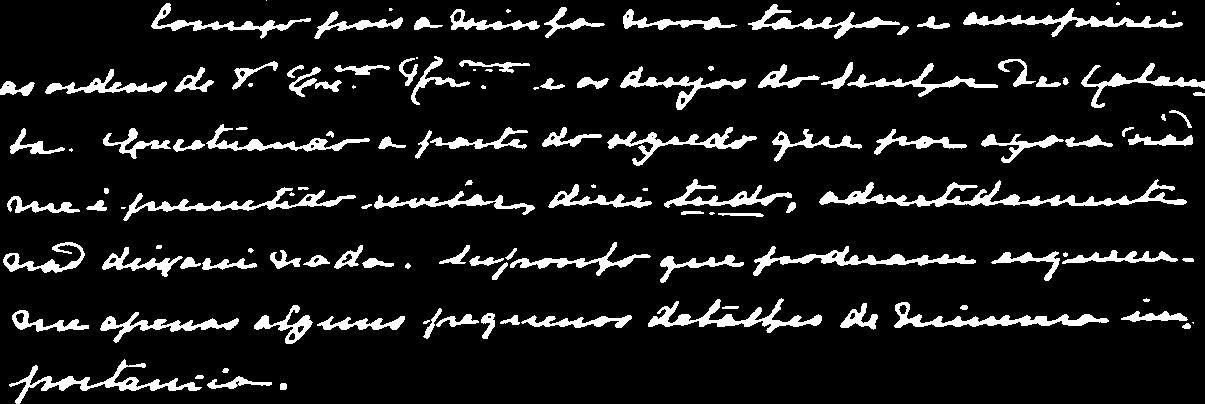 Começo pois a minha nova tarefa, e cumprirei
as ordens de V. Exc.ma Rv.ma e os desejos do Senhor De. Galam
ta. Exceptuando a parte do segredo que por agora não
me é premetido revelar, direi tudo, advertidamente
não dixarei nada. Supponho que poderam esquecer-
me apenas alguns pequenos detalhes de minima im
portancia.